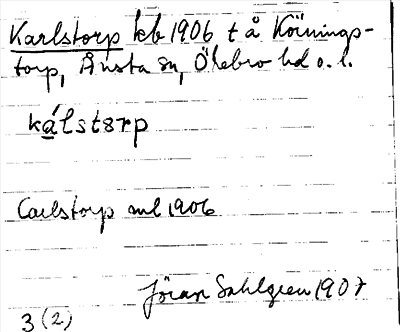 Karlstorp hb 1906 t å Körnings-
torp, Ånsta sn, Örebro hd o. l.
kálstørp
Carlstorp ml 1906
Jöran Sahlgren 1907
3 (2)